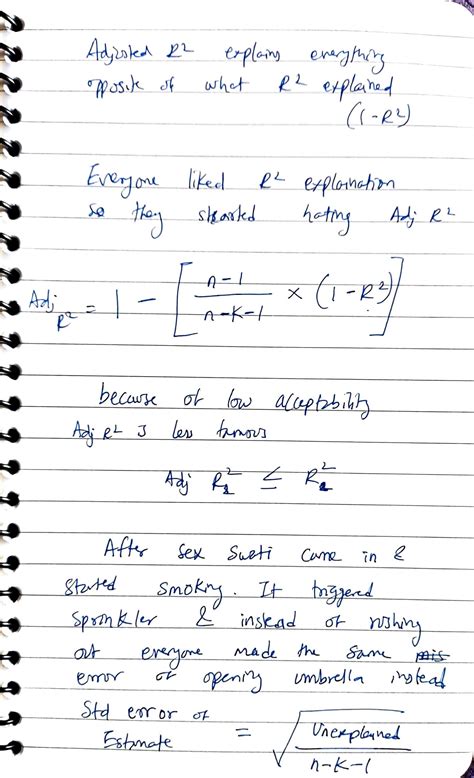 Adjusted R² explains everything
opposite of what R² explained
(1-R²)
Everyone liked R² explaination
so they started hating Adj R²
Adj R² = 1 - [ n-1 / n-k-1 × (1-R²) ]
because of low acceptability
Adj R² is less famous
Adj R² ≤ R²
After sex Sweti came in &
started smoking. It triggered
sprinkler & instead of rushing
out everyone made the same
error of opening umbrella instead
Std error of
Estimate = √ Unexplained / n-k-1